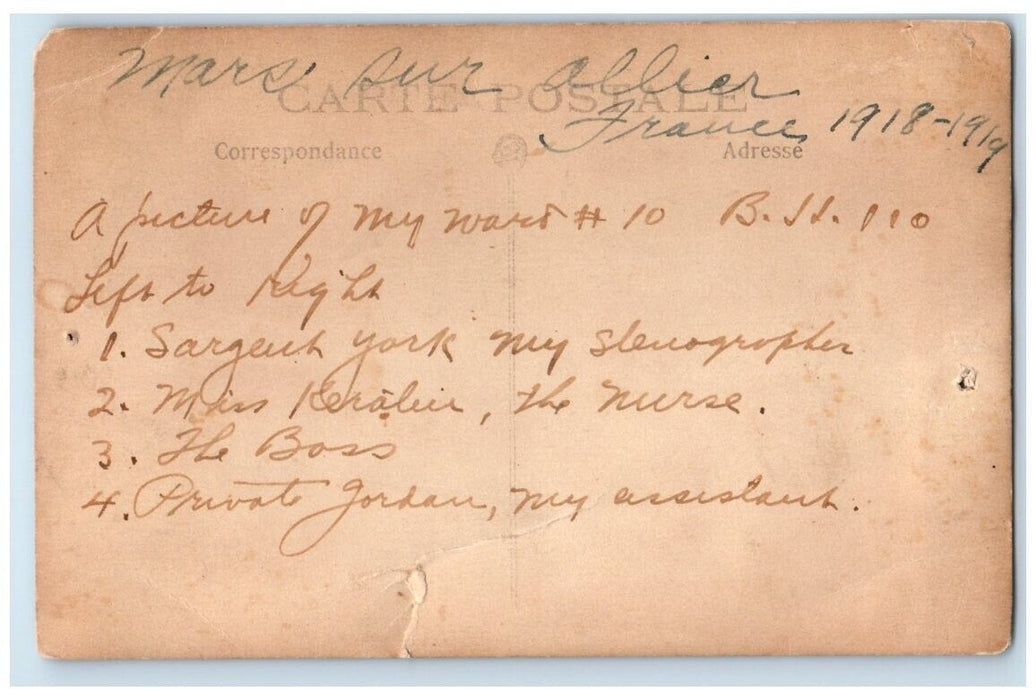 Mars sur Allier
CARTE POSTALE
France 1918-1919
Correspondance Adresse
A picture of my ward # 10 B.H. 110
Left to Right
1. Sargent York my stenographer
2. Miss , the nurse.
3. The Boss
4. Private Jordan, my assistant.